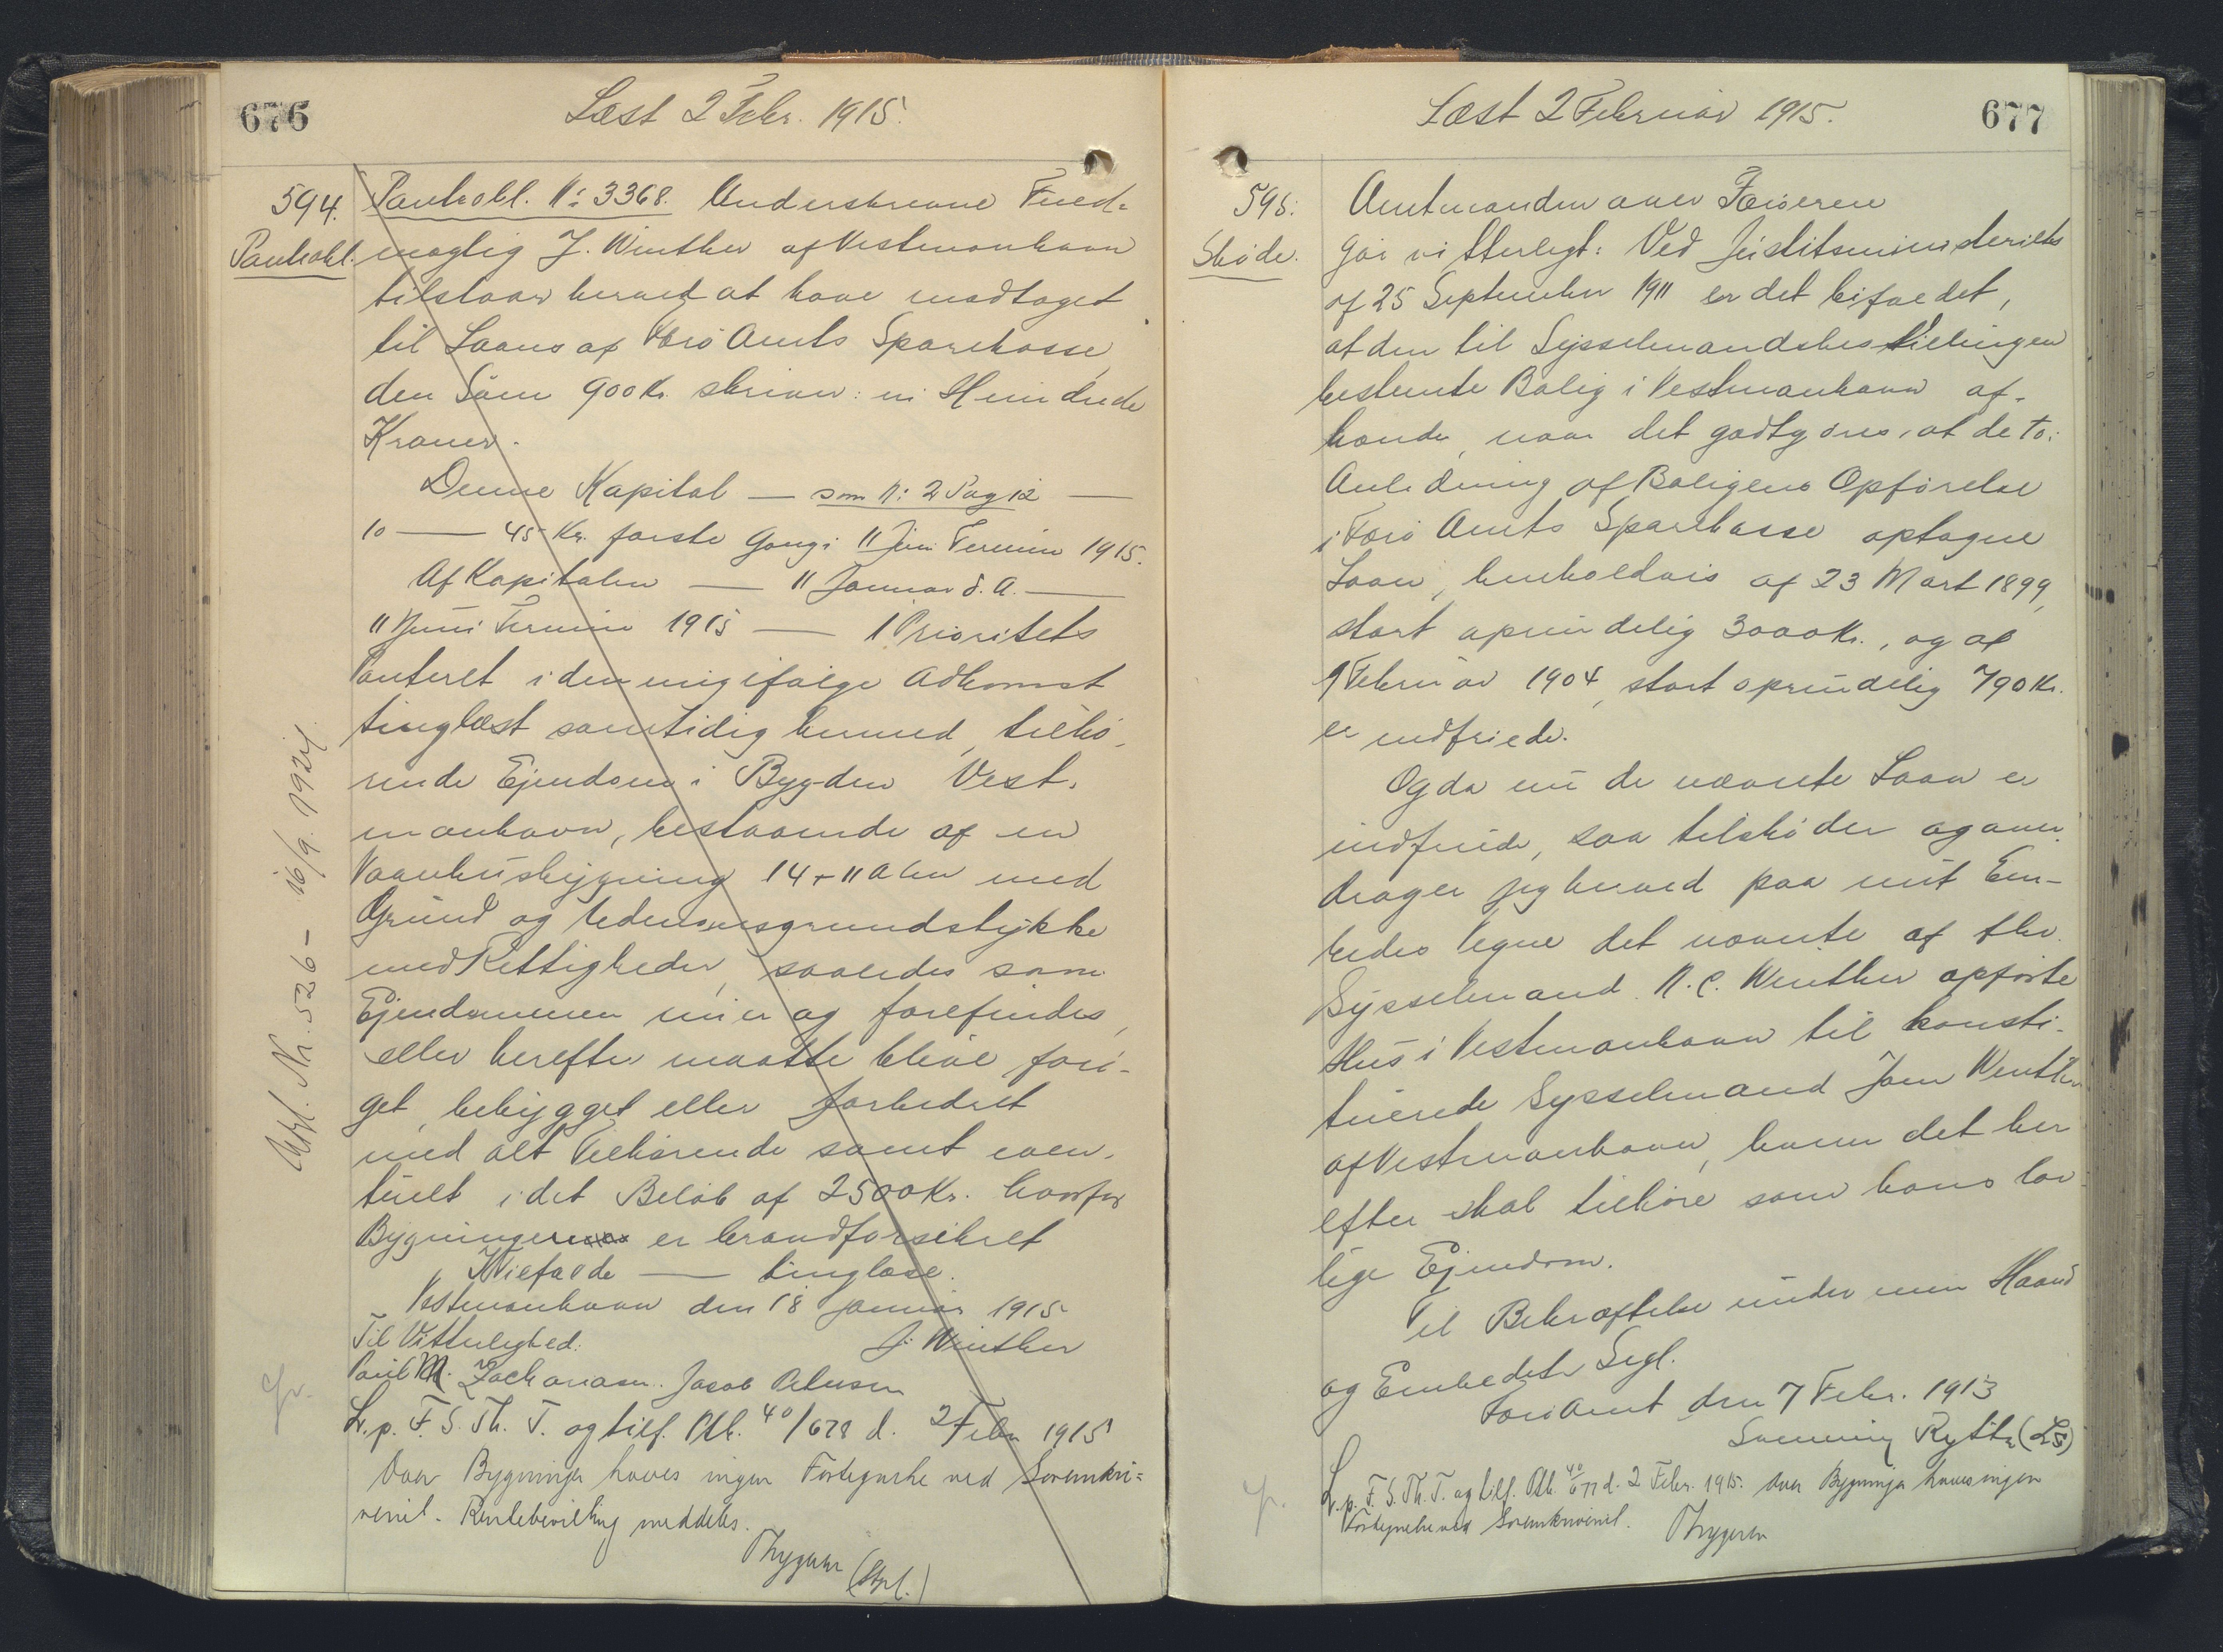 676
Læst 2 Febr. 1915.
594.
Pantobl.
Pantobl. No: 3368. Underskrevne Fuld-
mægtig J. Winther af Vestmanhavn
tilstaar herved at have modtaget
til Laans af Færø Amts Sparekasse
den Sum 900 Kr. skriver: ni Hundrede
Kroner.
Denne Kapital — som No: 2 Pag 12 —
10 — 45 Kr. første Gang i 11 Juni Termin 1915.
Af Kapitalen — 11 Januar d. A. —
11 Juni Termin 1915 — 1 Prioritets
Panteret i den mig ifølge Adkomst
tinglæst samtidig hermed, tilhø-
rende Ejendom i Bygden Vest-
manhavn, bestaaende af en
Vaanhusbygning 14 + 11 Alen med
Grund og Udenomsgrundstykke
med Rettigheder, saaledes som
Ejendommen nu er og forefindes,
eller herefter maatte blive forø-
get, bebygget eller forbedret
med alt Tilhørende samt even-
tuelt i det Beløb af 2500 Kr. hvorfor
Bygningerne er brandforsikret
I Tilfælde — tinglæse.
Vestmanhavn den 18 Januar 1915
Til Vitterlighed: J. Winther
Poul M. Zachariasen. Jacob Olesen
L. p. F. S. Th. T. og tilf. Ptb. 40/678 d. 2 Febr 1915
Over Bygninger haves ingen Fortegnelse ved Sorenskri-
veriet. Rentebevilling meddeles.
Thygesen
(Stpl.)
Udsl. Nr. 526 - 16/9. 1924.
677
Læst 2 Februar 1915.
595.
Skøde.
Amtmanden over Færøerne
Gør vitterligt: Ved Justitsministeriets
af 25 September 1911 er det bifaldet,
at den til Sysselmandsbestillingen
bestemte Bolig i Vestmanhavn af-
hændes, naar det godtgøres, at de to i
Anledning af Boligens Opførelse
i Færø Amts Sparekasse optagne
Laan, henholdsvis af 23 Marts 1899,
stort oprindelig 3000 Kr., og af
9 Februar 1904, stort oprindelig 790 Kr.
er indfriede.
Og da nu de nævnte Laan er
indfriede, saa tilskøder og over-
drager jeg herved paa mit Em-
bedes Vegne det nævnte af fhv.
Sysselmand N. C. Winther opførte
Hus i Vestmanhavn til konsti-
tuerede Sysselmand Jens Winther
af Vestmanhavn, hvem det her-
efter skal tilhøre som hans lov-
lige Ejendom.
Til Bekræftelse under min Haand
og Embedets Segl.
Færø Amt den 7 Febr. 1913
Svenning Rytter (LS)
L. p. F. S. Th. T. og tilf. Ptb. 40/677 d. 2 Febr. 1915. Over Bygninger haves ingen
Fortegnelse ved Sorenskriveriet. Thygesen